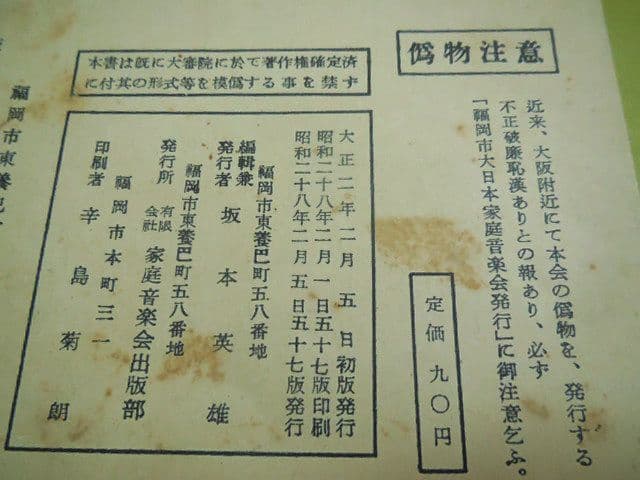 僞物注意
近来、大阪附近にて本会の僞物を、発行する
不正破廉恥漢ありとの報あり、必ず
「福岡市大日本家庭音楽会発行」に御注意乞ふ。
定価 九〇円
本書は既に大審院に於て著作権確定済
に付其の形式等を模僞する事を禁ず
大正二年二月五日初版発行
昭和二十八年二月一日五十七版印刷
昭和二十八年二月五日五十七版発行
福岡市東養巴町五八番地
編輯兼
発行者 坂本英雄
福岡市東養巴町五八番地
発行所 有限
会社 家庭音楽会出版部
福岡市本町三一
印刷者 辛島菊朗
福岡市東養巴